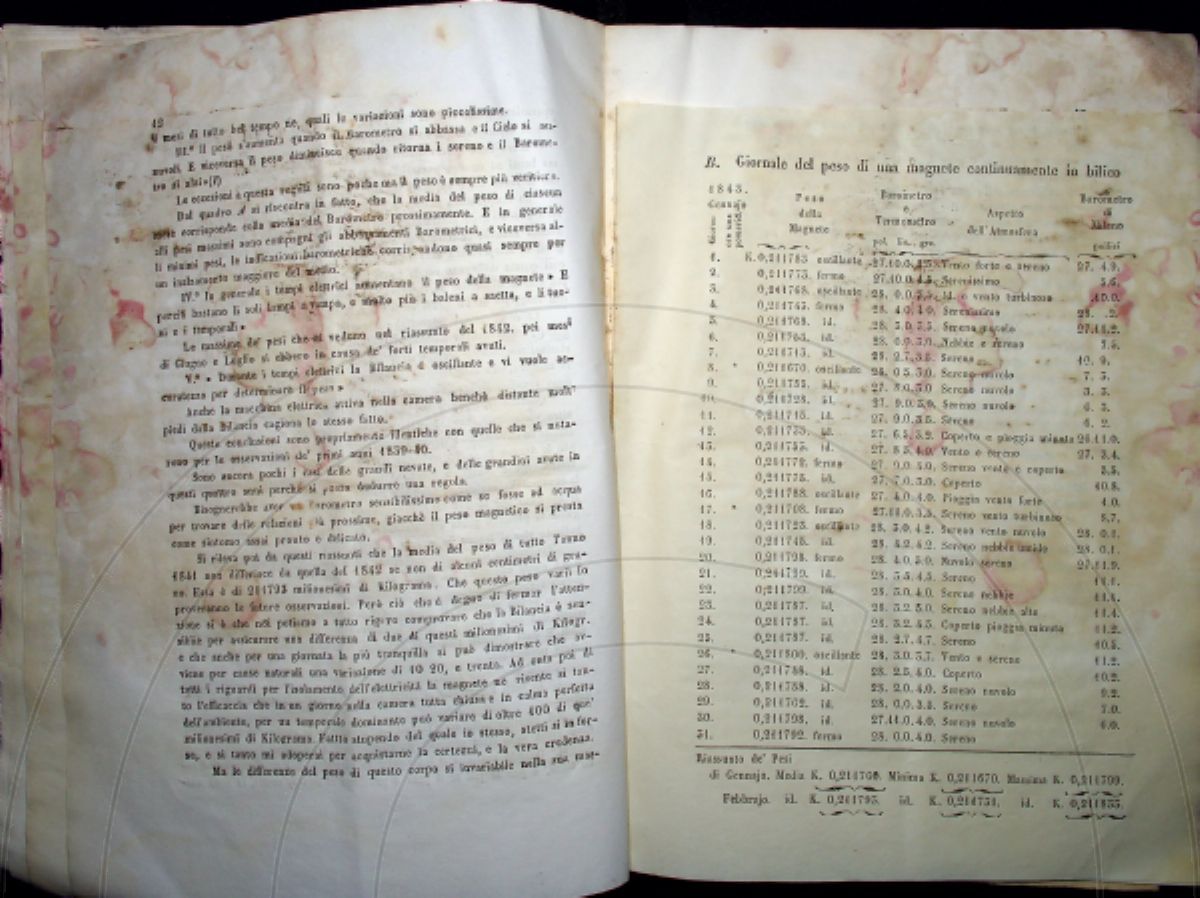 42
mesi di tutto bel tempo ne, quali le variazioni sono piccolissime.
III.° Il peso s'aumenta quando il Barometro si abbassa e il Cielo si an-
nuvoli. E viceversa il peso diminuisce quando ritorna i sereno e il Barome-
tro si alzi
Le eccezioni a questa regola sono poche ma il peso è sempre più veritiero.
Dal quadro A si riscontra in fatto, che la media del peso di ciascun
mese corrisponde colla media del Barometro prossimamente. E in generale
alli pesi massimi sono compagni gli abbassamenti Barometrici, e viceversa al-
li minimi pesi, le indicazioni barometriche corrispondono quasi sempre per
un inalzamento maggiore del medio.
IV.° In generale i tempi elettrici aumentano il peso della magnete » E
perciò bastano li soli tempi a vampo, e molto più i baleni a saetta, e li tuo-
ni e i temporali »
Le massime de' pesi che si vedono nel riassunto del 1842. pei mesi
di Giugno e Luglio si ebbero in causa de' forti temporali avuti.
V.° « Durante i tempi elettrici la Bilancia è oscillante e vi vuole ac-
curatezza per determinare il peso »
Anche la macchina elettrica attiva nella camera benchè distante molti
piedi dalla Bilancia cagiona lo stesso fatto.
Queste conclusioni sono propriamente identiche con quelle che si nota-
rono per le osservazioni de' primi anni 1839-40.
Sono ancora pochi i casi delle grandi nevate, e delle grandini avute in
questi quattro anni perchè si possa dedurre una regola.
Bisognerebbe aver un Barometro sensibilissimo come se fosse ad acqua
per trovare delle relazioni più prossime, giacchè il peso magnetico si presta
come sintomo assai pronto e delicato.
Si rileva poi da questi riassunti che la media del peso di tutto l'anno
1841 non differisce da quella del 1842 se non di alcuni centimetri di gra-
no. Esta è di 211793 milionesimi di Kilogramo. Che questo peso varii lo
proveranno le future osservazioni. Però ciò che è degno di fermar l'atten-
zione si è che noi potiamo a tutto rigore comprovare che la Bilancia è sen-
sibile per assicurare una differenza di due di questi milionesimi di Kilogr.
e che anche per una giornata la più tranquilla si può dimostrare che av-
viene per cause naturali una variazione di 10 20, e trenta. Ad onta poi di
tutti i riguardi per l'isolamento dell'elettricità la magnete ne risente si tan-
to l'efficacia che in un giorno nella camera tutta chiusa e in calma perfetta
dell'ambiente, per un temporale dominante può variare di oltre 100 di que'
milionesimi di Kilogramo. Fattto stupendo del quale io stesso, stetti si in for-
se, e si tanto mi adoperai per acquistarne la certezza, e la vera credenza.
Ma le differenze del peso di questo corpo si invariabile nella sua mas-
B. Giornale del peso di una magnete continuamente in bilico
1843. Peso Barometro Barometro
Gennajo della e Aspetto di
Giorni Magnete Termometro dell'Atmosfera Milano
pol. lin. gra. pollici
1. K. 0,211763 oscillante Vento forte e sereno 27. 4.9.
2. 0,211773. fermo Serenissimo 5.6.
3. 0,211768. oscillante Id. e vento turbinoso
4. 0,211745. fermo 28. 4.0.4.0. Serenissimo 28. .2.
5. 0,211768. id. 28. 3.0.3.5. Sereno nuvolo 27.11.2.
6. id. Nebbie e sereno
7. 0,211713. id. 28. 2.7.3.8. Sereno 10. 9.
8. " 0,211670. oscillante 28. 0.5.3.0. Sereno nuvolo 7. 3.
9. id. 27. 8.0.3.0 Sereno nuvolo 3. 3.
10. 0,211728. id. 27. 9.0.3.0. Sereno nuvolo 6. 3.
11. 0,211715. id. 27. 9.0.3.5. Sereno 6. 2.
12. id. 27. 6.5.3.2. Coperto e pioggia minuta 26.11.0.
13. id. Vento e sereno 27. 3.4.
14. 0,211772. fermo 27. 9.0.4.0. Sereno vento e coperto 5.5.
15. 0,211775. id. 27. 7.0.3.0. Coperto 10.8.
16. 0,211788. oscillante 27. 4.0.4.0. Pioggia vento forte 4.0.
17. " 0,211708. fermo Sereno vento turbinoso 8.7.
18. 0,211723. oscillante 28. 3.0.4.2. Sereno vento nuvolo 28. 0.1.
19. 0,211745. id. 28. 4.2.4.2. Sereno nebbie umido 28. 0.1.
20. 0,211798. fermo 28. 4.0.5.0. Nuvolo sereno 27.11.9.
21. id. 28. 3.5.4.5. Sereno 11.1.
22. 0,211799. id. 28. 3.0.4.0. Sereno nebbie 11.4.
23. 0,211787. id. 28. 3.2.5.0. Sereno nebbie alte 11.4.
24. 0,211787. id. 28. 3.2.4.5. Coperto pioggia minuta 11.2.
25. 0,211787. id. 28. 2.7.4.7. Sereno 10.5.
26. " oscillante 28. 3.0.3.7. Vento e sereno 11.2.
27. 0,211788. id. 28. 2.5.4.0. Coperto 10.2.
28. 0,211758. id. 28. 2.0.4.0. Sereno nuvolo 9.2.
29. 0,211762. id. 28. 0.0.3.5. Sereno 7.0.
30. 0,211798. id. 27.11.0.4.0. Sereno nuvolo 6.0.
31. 0,211792. fermo 28. 0.0.4.0. Sereno
Riassunto de' Pesi
di Gennajo. Media K. 0,211760. Minima K. 0,211670. Massima K. 0,211799.
Febbrajo. id. K. 0,211795. id. K. 0,211751. id. K. 0,211855.